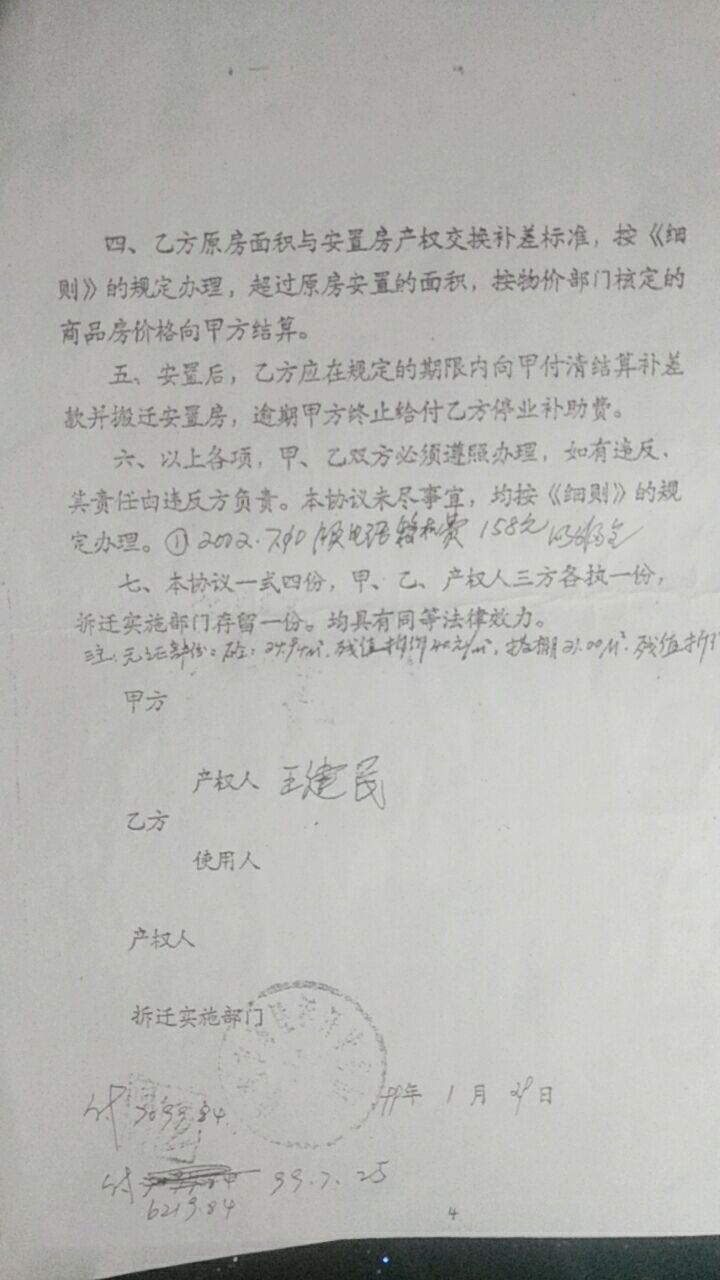 四、乙方原房面积与安置房产权交换补差标准，按《细
则》的规定办理，超过原房安置的面积，按物价部门核定的
商品房价格向甲方结算。
五、安置后，乙方应在规定的期限内向甲付清结算补差
款并搬迁安置房，逾期甲方终止给付乙方停业补助费。
六、以上各项，甲、乙双方必须遵照办理，如有违反，
其责任由违反方负责。本协议未尽事宜，均按《细则》的规
定办理。① 电话移机费 158元
七、本协议一式四份，甲、乙、产权人三方各执一份，
拆迁实施部门存留一份。均具有同等法律效力。
注：无证部份： 残值折价40元/㎡， 21.00㎡ 残值折
甲方
产权人 王建民
乙方
使用人
产权人
拆迁实施部门
99年 1月 29日
付
付 99.7.25
6219.84
4